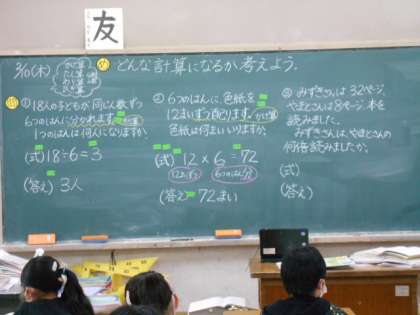 友
2/10(木)
かけ算
たし算
わり算
ひき算
め どんな計算になるか考えよう。
① 18人の子どもが同じ人数ずつ
6つのはんに分かれます。わり算
1つのはんは何人になりますか。
(式)18÷6=3
(答え) 3人
② 6つのはんに、色紙を
12まいずつ配ります。かけ算
色紙は何まいいりますか。
(式) 12×6=72
12まいずつ
6つのはん分
(答え) 72まい
③ みずきさんは 32ページ、
やまとさんは8ページ、本を
読みました。
みずきさんは、やまとさんの
何倍読みましたか。
(式)
(答え)